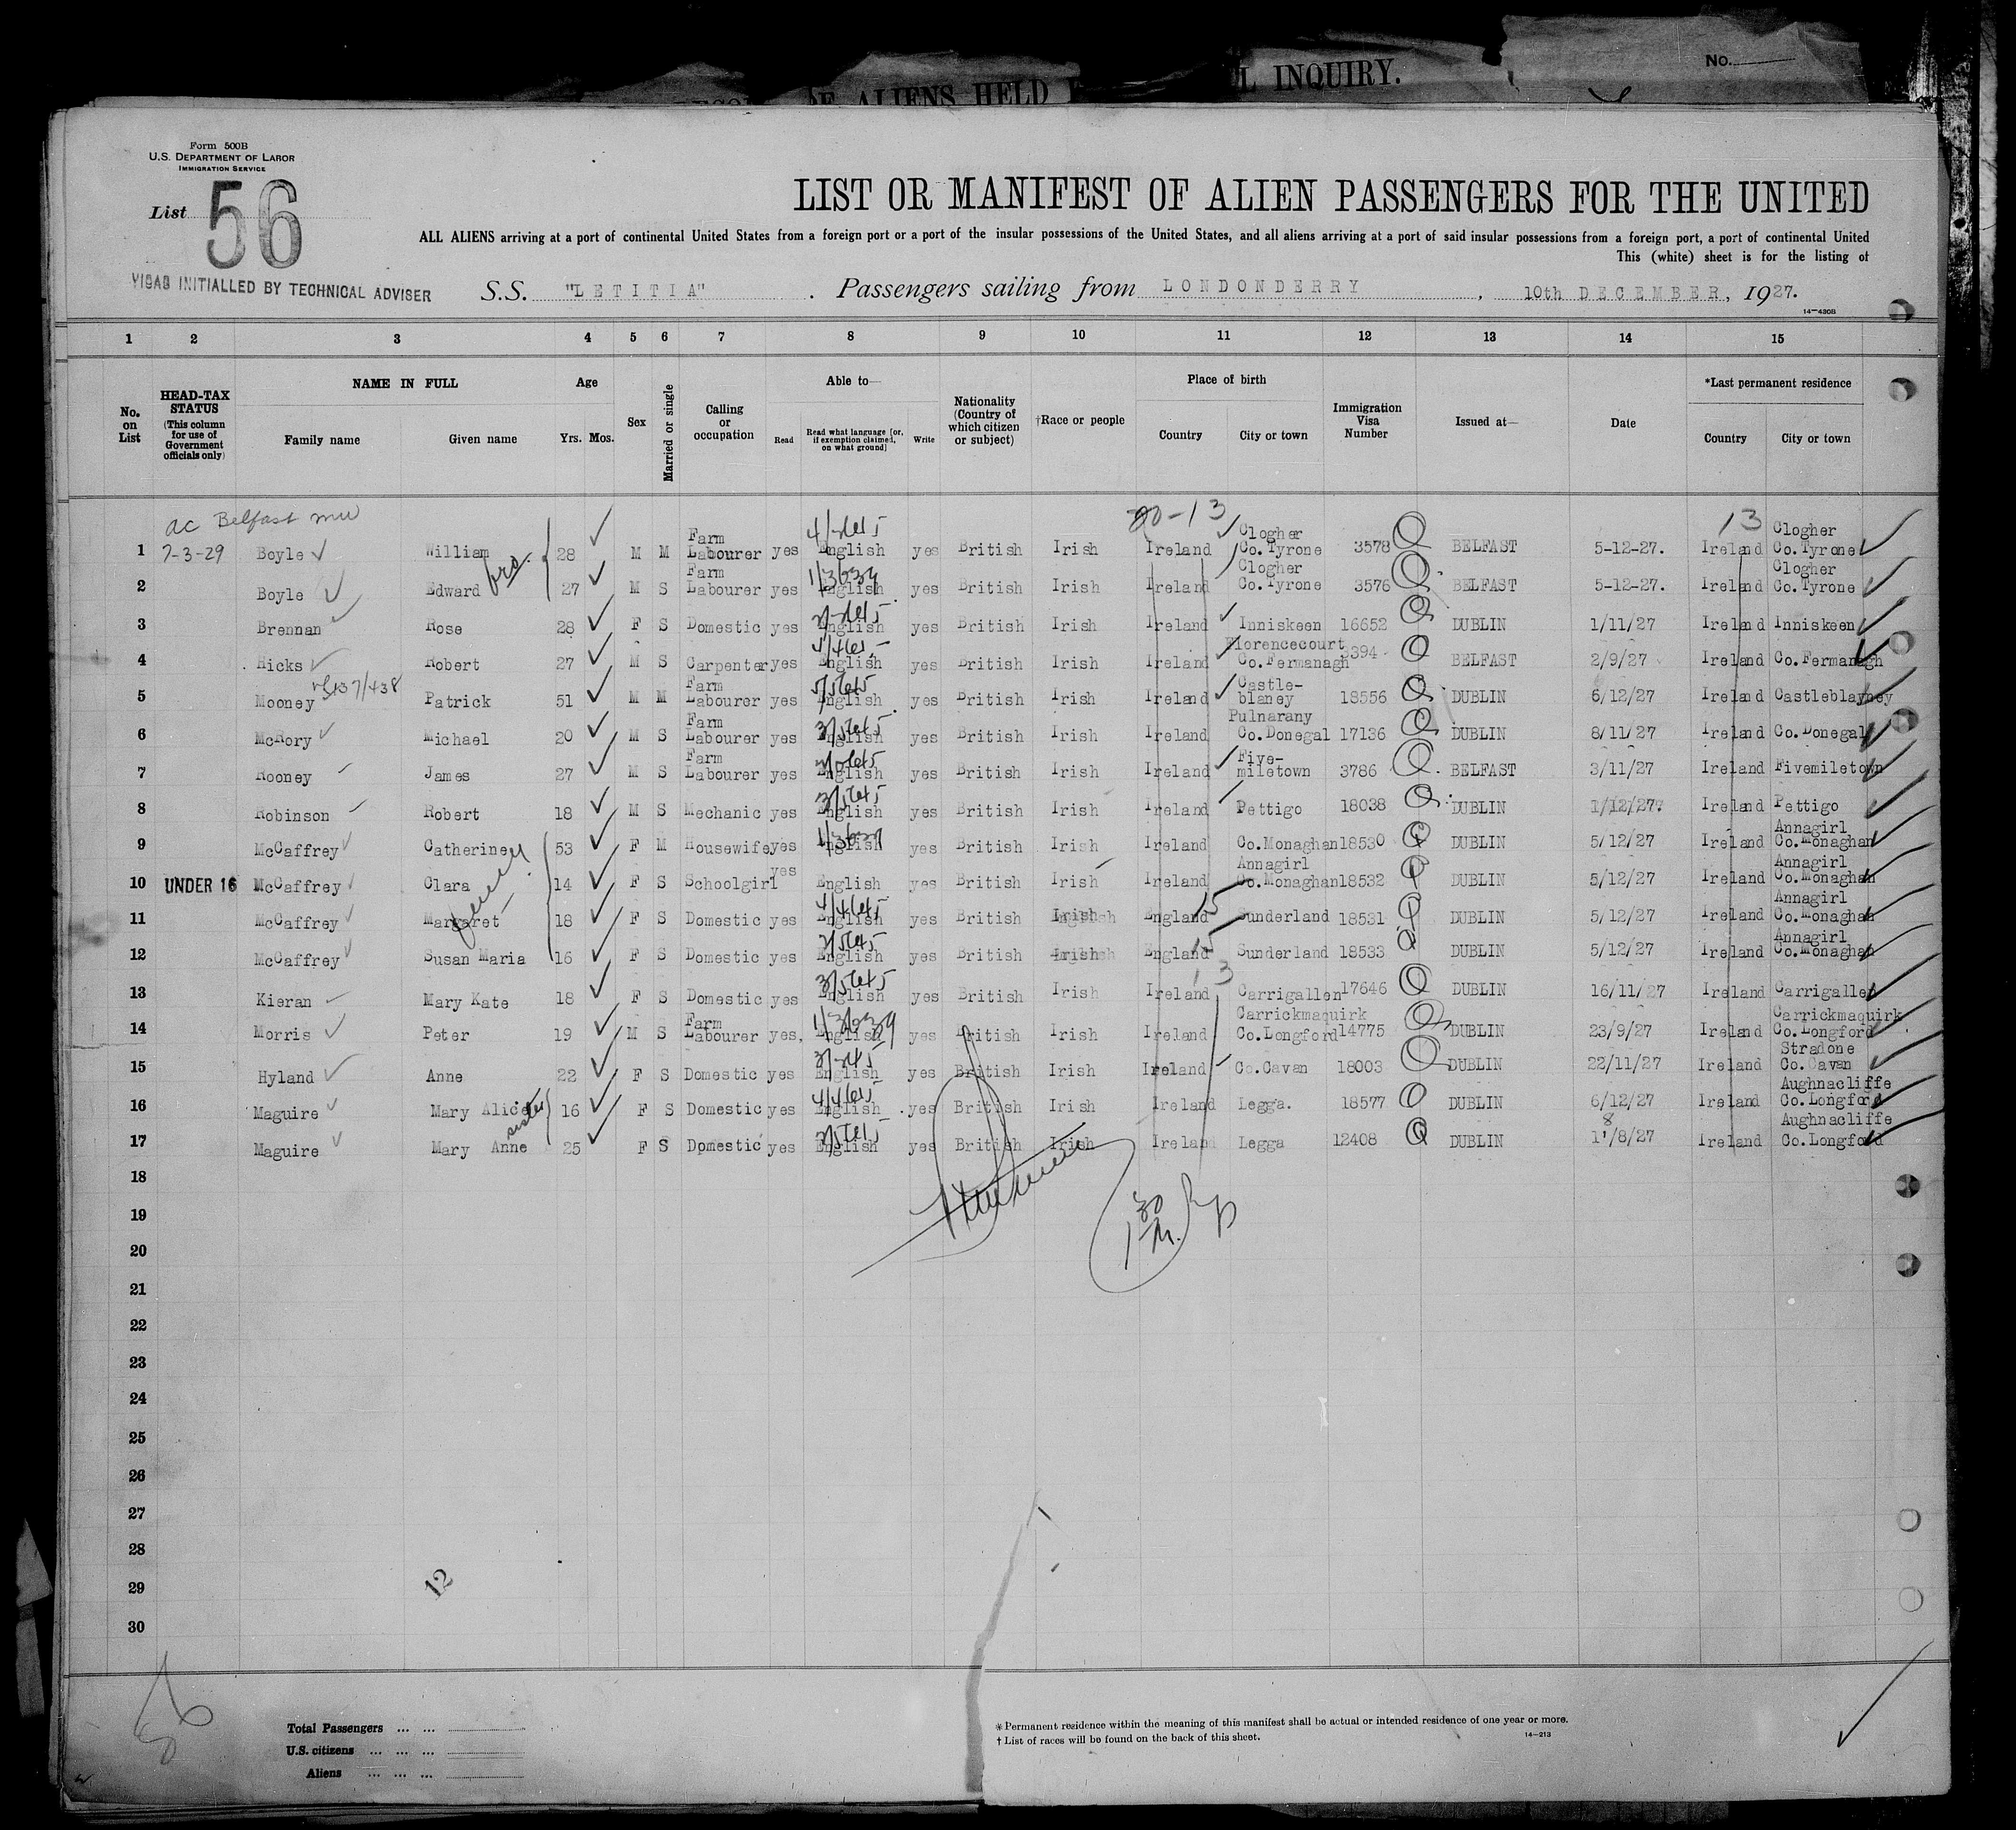 No.
ALIENS HELD L INQUIRY.
Form 500B
U.S. DEPARTMENT OF LABOR
IMMIGRATION SERVICE
List 56
VISAS INITIALLED BY TECHNICAL ADVISER
LIST OR MANIFEST OF ALIEN PASSENGERS FOR THE UNITED
ALL ALIENS arriving at a port of continental United States from a foreign port or a port of the insular possessions of the United States, and all aliens arriving at a port of said insular possessions from a foreign port, a port of continental United
This (white) sheet is for the listing of
S.S. "LETITIA" . Passengers sailing from LONDONDERRY, 10th DECEMBER, 1927.
14—430B
1 2 3 4 5 6 7 8 9 10 11 12 13 14 15
No. on List
HEAD-TAX STATUS (This column for use of Government officials only)
NAME IN FULL Family name Given name
Age Yrs. Mos.
Sex
Married or single
Calling or occupation
Able to— Read Read what language [or, if exemption claimed, on what ground] Write
Nationality (Country of which citizen or subject)
†Race or people
Place of birth Country City or town
Immigration Visa Number
Issued at—
Date
*Last permanent residence Country City or town
ac Belfast 20-13 13
1 7-3-29 Boyle William 28 M M Farm Labourer yes English yes British Irish Ireland Clogher Co.Tyrone 3578 BELFAST 5-12-27. Ireland Clogher Co.Tyrone
2 Boyle Edward bro. 27 M S Farm Labourer yes 1/3639 English yes British Irish Ireland Clogher Co.Tyrone 3576 BELFAST 5-12-27. Ireland Clogher Co.Tyrone
3 Brennan Rose 28 F S Domestic yes English yes British Irish Ireland Inniskeen 16652 DUBLIN 1/11/27 Ireland Inniskeen
4 Hicks Robert 27 M S Carpenter yes English yes British Irish Ireland Florencecourt Co.Fermanagh 3394 BELFAST 2/9/27 Ireland Co.Fermanagh
5 Mooney Patrick 51 M M Farm Labourer yes 5/5645 English yes British Irish Ireland Castle-blaney 18556 DUBLIN 6/12/27 Ireland Castleblayney
6 McRory Michael 20 M S Farm Labourer yes 3/5645 English yes British Irish Ireland Pulnarany Co.Donegal 17136 DUBLIN 8/11/27 Ireland Co.Donegal
7 Rooney James 27 M S Farm Labourer yes English yes British Irish Ireland Five-miletown 3786 BELFAST 3/11/27 Ireland Fivemiletown
8 Robinson Robert 18 M S Mechanic yes 3/5645 English yes British Irish Ireland Pettigo 18038 DUBLIN 1/12/27. Ireland Pettigo
9 McCaffrey Catherine 53 F M Housewife yes 1/3639 English yes British Irish Ireland Co.Monaghan 18530 DUBLIN 5/12/27 Ireland Annagirl Co.Monaghan
10 UNDER 16 McCaffrey Clara 14 F S Schoolgirl yes English yes British Irish Ireland Annagirl Co.Monaghan 18532 DUBLIN 5/12/27 Ireland Annagirl Co.Monaghan
11 McCaffrey Margaret 18 F S Domestic yes 4/4645 English yes British Irish England Sunderland 18531 DUBLIN 5/12/27 Ireland Annagirl Co.Monaghan
12 McCaffrey Susan Maria 16 F S Domestic yes 2/5645 English yes British Irish England Sunderland 18533 DUBLIN 5/12/27 Ireland Annagirl Co.Monaghan
13 Kieran Mary Kate 18 F S Domestic yes 3/5645 English yes British Irish Ireland Carrigallen 17646 DUBLIN 16/11/27 Ireland Carrigallen
14 Morris Peter 19 M S Farm Labourer yes, 1/3639 English yes British Irish Ireland Carrickmaquirk Co.Longford 14775 DUBLIN 23/9/27 Ireland Carrickmaquirk Co.Longford
15 Hyland Anne 22 F S Domestic yes English yes British Irish Ireland Co.Cavan 18003 DUBLIN 22/11/27 Ireland Stradone Co.Cavan
16 Maguire Mary Alice 16 F S Domestic yes 4/4645 English yes British Irish Ireland Legga. 18577 DUBLIN 6/12/27 Ireland Aughnacliffe Co.Longford
17 Maguire Mary Anne sister 25 F S Domestic yes 2/5645 English yes British Irish Ireland Legga 12408 DUBLIN 11/8/27 Ireland Aughnacliffe Co.Longford
18
19
20
21
22
23
24
25
26
27
28
29
30
12
56
Total Passengers ... ...
U.S. citizens ... ... ...
Aliens ... ... ...
* Permanent residence within the meaning of this manifest shall be actual or intended residence of one year or more.
† List of races will be found on the back of this sheet.
14—213